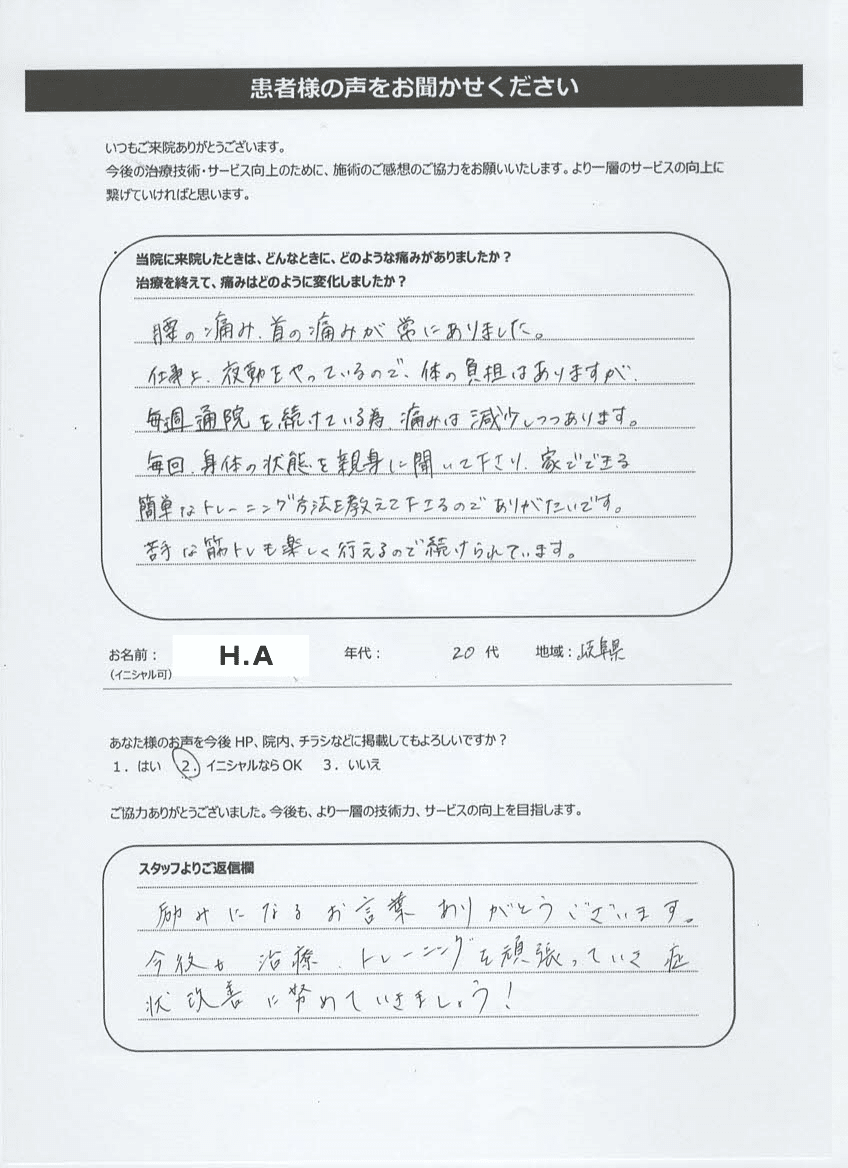 患者様の声をお聞かせください
いつもご来院ありがとうございます。
今後の治療技術・サービス向上のために、施術のご感想のご協力をお願いいたします。より一層のサービスの向上に
繋げていければと思います。
当院に来院したときは、どんなときに、どのような痛みがありましたか？
治療を終えて、痛みはどのように変化しましたか？
腰の痛み、首の痛みが常にありました。
仕事上、夜勤をやっているので、体の負担はありますが、
毎週通院を続けている為、痛みは減少しつつあります。
毎回、身体の状態を親身に聞いて下さり、家でできる
簡単なトレーニング方法を教えて下さるのでありがたいです。
苦手な筋トレも楽しく行えるので続けられています。
お名前： H.A 年代： 20 代 地域：岐阜県
（イニシャル可）
あなた様のお声を今後 HP、院内、チラシなどに掲載してもよろしいですか？
1．はい 2．イニシャルなら OK 3．いいえ
ご協力ありがとうございました。今後も、より一層の技術力、サービスの向上を目指します。
スタッフよりご返信欄
励みになるお言葉ありがとうございます。
今後も治療、トレーニングを頑張っていき症
状改善に努めていきましょう！